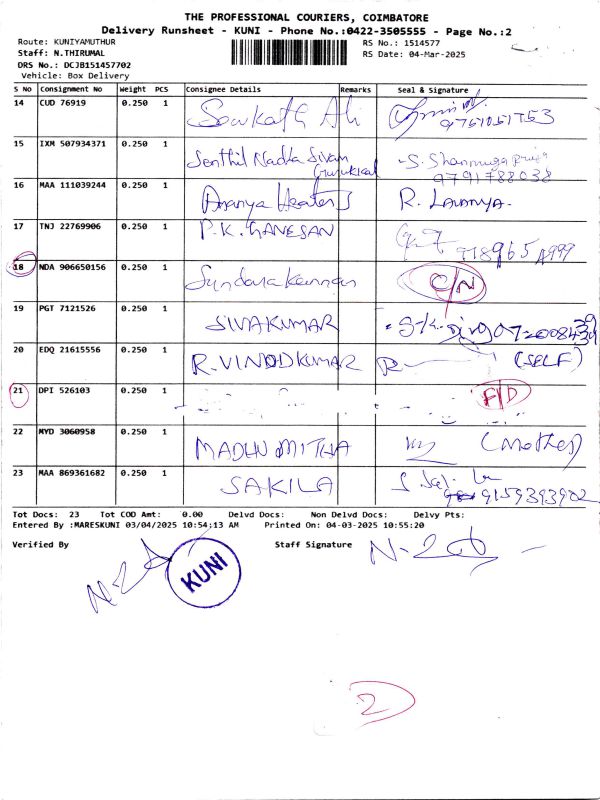 THE PROFESSIONAL COURIERS, COIMBATORE
Delivery Runsheet - KUNI - Phone No.:0422-3505555 - Page No.:2
Route: KUNIYAMUTHUR RS No.: 1514577
Staff: N.THIRUMAL RS Date: 04-Mar-2025
DRS No.: DCJB151457702
Vehicle: Box Delivery
S No Consignment No Weight PCS Consignee Details Remarks Seal & Signature
14 CUD 76919 0.250 1 Sowkath Ali
15 IXM 507934371 0.250 1 Senthil Nadha Sivan
Gurukkal S. Shanmuga Priya
9791788038
16 MAA 111039244 0.250 1 Ananya Heaters R. LAVANYA.
17 TNJ 22769906 0.250 1 P.K. GANESAN
18 NDA 906650156 0.250 1 Sundara Kannan C/N
19 PGT 7121526 0.250 1 SIVAKUMAR
20 EDQ 21615556 0.250 1 R. VINODKUMAR (SELF)
21 DPI 526103 0.250 1 F/D
22 MYD 3060958 0.250 1 MADHUMITHA (Mother)
23 MAA 869361682 0.250 1 SAKILA 9159393902
Tot Docs: 23 Tot COD Amt: 0.00 Delvd Docs: Non Delvd Docs: Delvy Pts:
Entered By :MARESKUNI 03/04/2025 10:54:13 AM Printed On: 04-03-2025 10:55:20
Verified By Staff Signature
KUNI
2